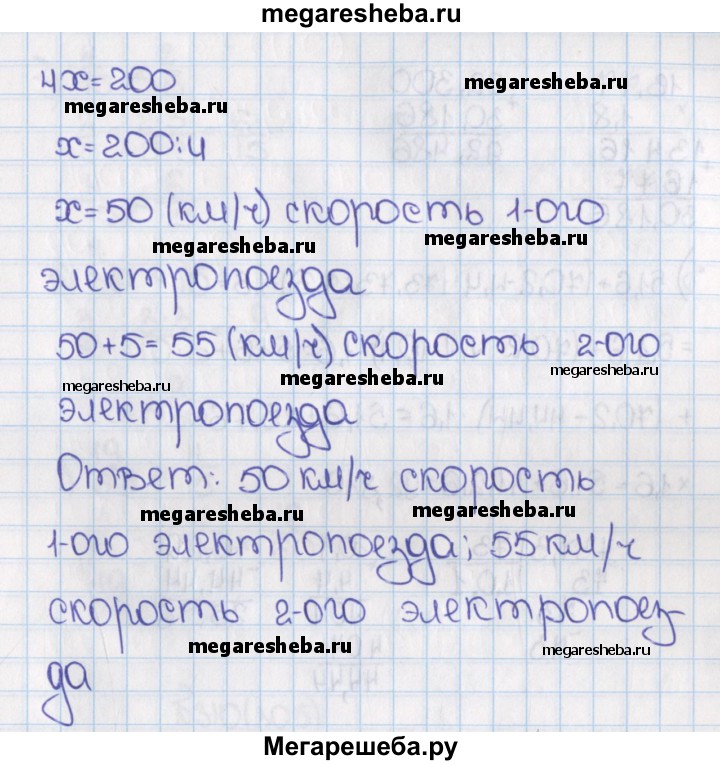 megaresheba.ru
4x=200
megaresheba.ru
megaresheba.ru
x=200:4
x=50 (км/ч) скорость 1-ого
megaresheba.ru
megaresheba.ru
электропоезда
50+5=55 (км/ч) скорость 2-ого
megaresheba.ru
megaresheba.ru
megaresheba.ru
электропоезда
Ответ: 50 км/ч скорость
megaresheba.ru
megaresheba.ru
1-ого электропоезда; 55 км/ч
скорость 2-ого электропоез-
megaresheba.ru
megaresheba.ru
да
Мегарешеба.ру